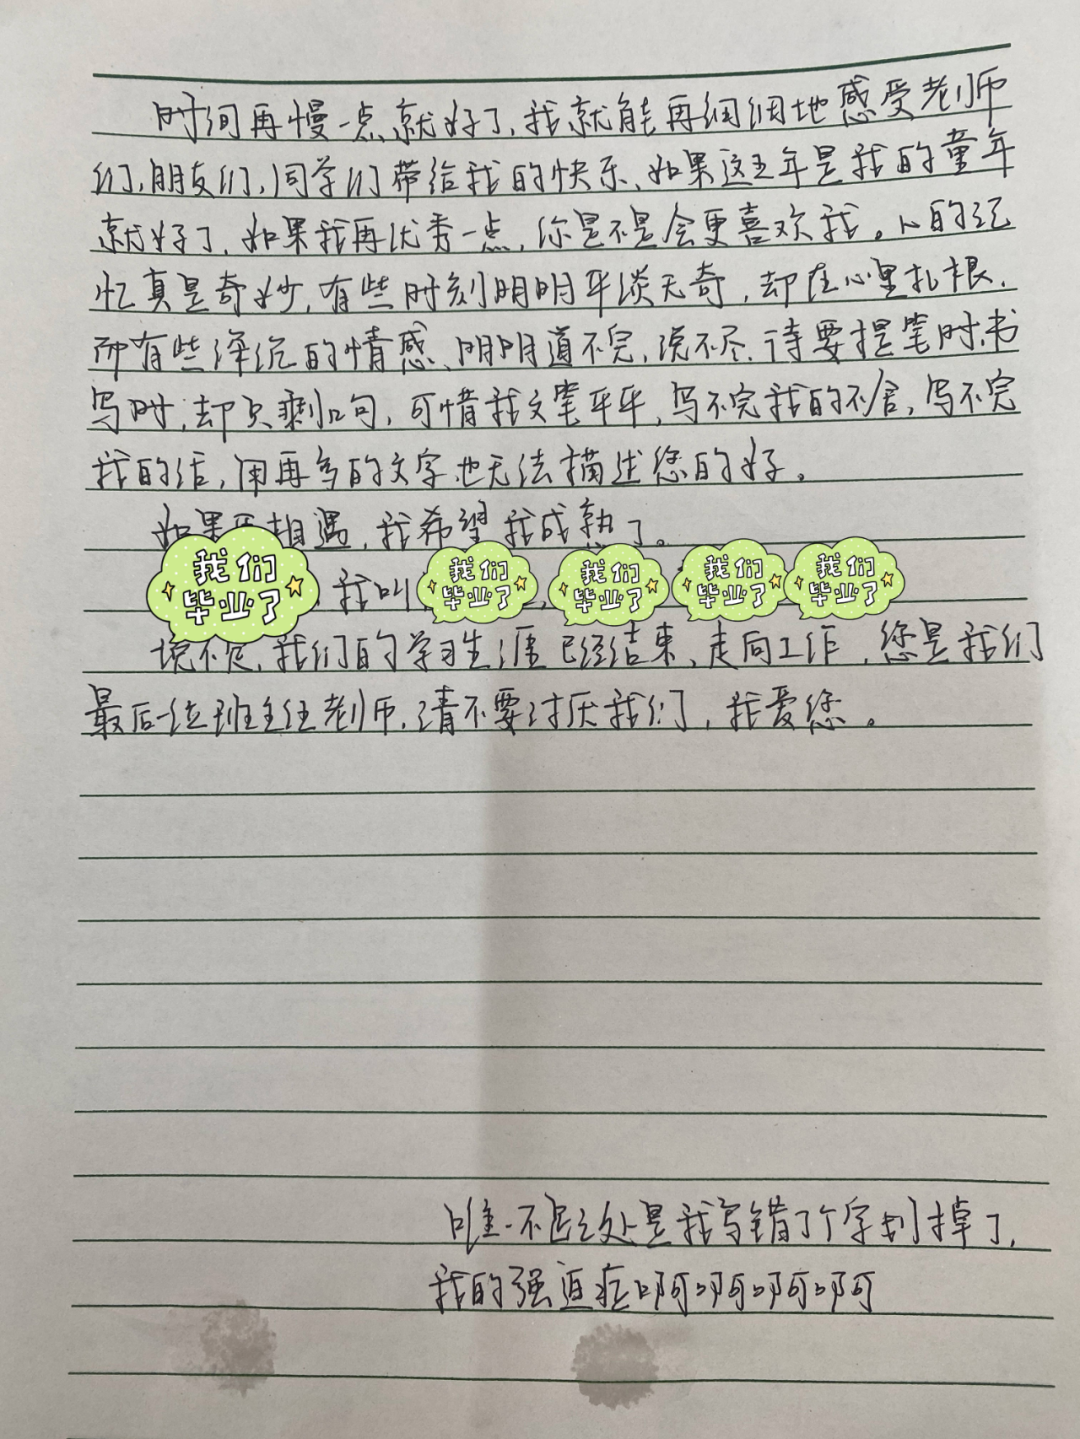 时间再慢一点就好了,我就能再细细地感受老师
们,朋友们,同学们带给我的快乐、如果这五年是我的童年
就好了,如果我再优秀一点,你是不是会更喜欢我。人的记
忆真是奇妙,有些时刻明明平淡无奇,却在心里扎根,
而有些深沉的情感、明明道不完,说不尽,待要提笔时,书
写时,却只剩几句,可惜我文笔平平,写不完我的不舍,写不完
我的话,用再多的文字也无法描述您的好。
如果再相遇,我希望我成熟了。
我们毕业了 , 我叫 我们毕业了 , 我们毕业了 我们毕业了 我们毕业了
说不定,我们的学习生涯已经结束,走向工作,您是我们
最后一位班主任老师,请不要讨厌我们,我爱您。
唯一不足之处是我写错了个字划掉了,
我的强迫症啊啊啊啊